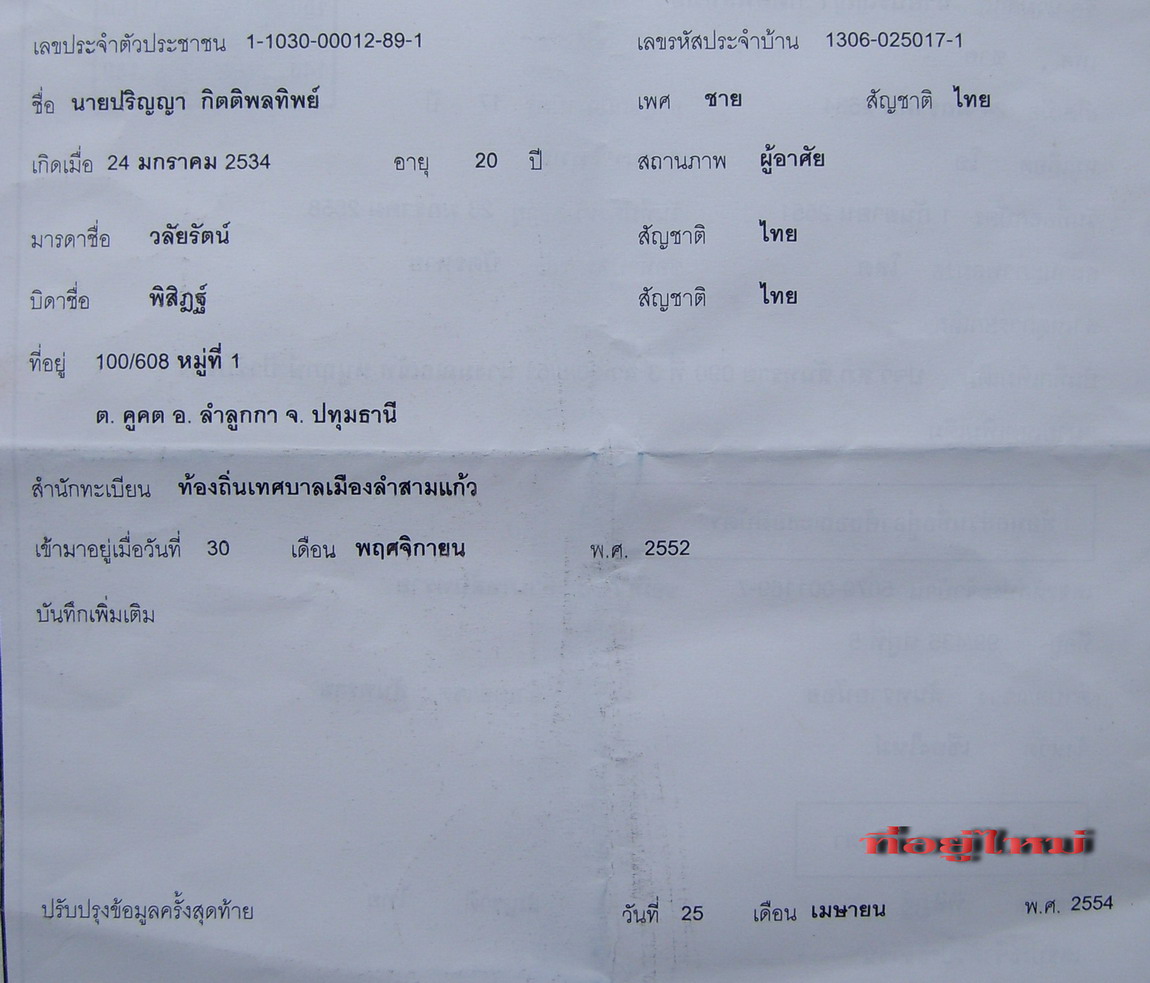 เลขประจำตัวประชาชน 1-1030-00012-89-1 เลขรหัสประจำบ้าน 1306-025017-1
ชื่อ นายปริญญา กิตติพลทิพย์ เพศ ชาย สัญชาติ ไทย
เกิดเมื่อ 24 มกราคม 2534 อายุ 20 ปี สถานภาพ ผู้อาศัย
มารดาชื่อ วลัยรัตน์ สัญชาติ ไทย
บิดาชื่อ พิสิฎฐ์ สัญชาติ ไทย
ที่อยู่ 100/608 หมู่ที่ 1
ต. คูคต อ. ลำลูกกา จ. ปทุมธานี
สำนักทะเบียน ท้องถิ่นเทศบาลเมืองลำสามแก้ว
เข้ามาอยู่เมื่อวันที่ 30 เดือน พฤศจิกายน พ.ศ. 2552
บันทึกเพิ่มเติม
ที่อยู่ใหม่
ปรับปรุงข้อมูลครั้งสุดท้าย วันที่ 25 เดือน เมษายน พ.ศ. 2554